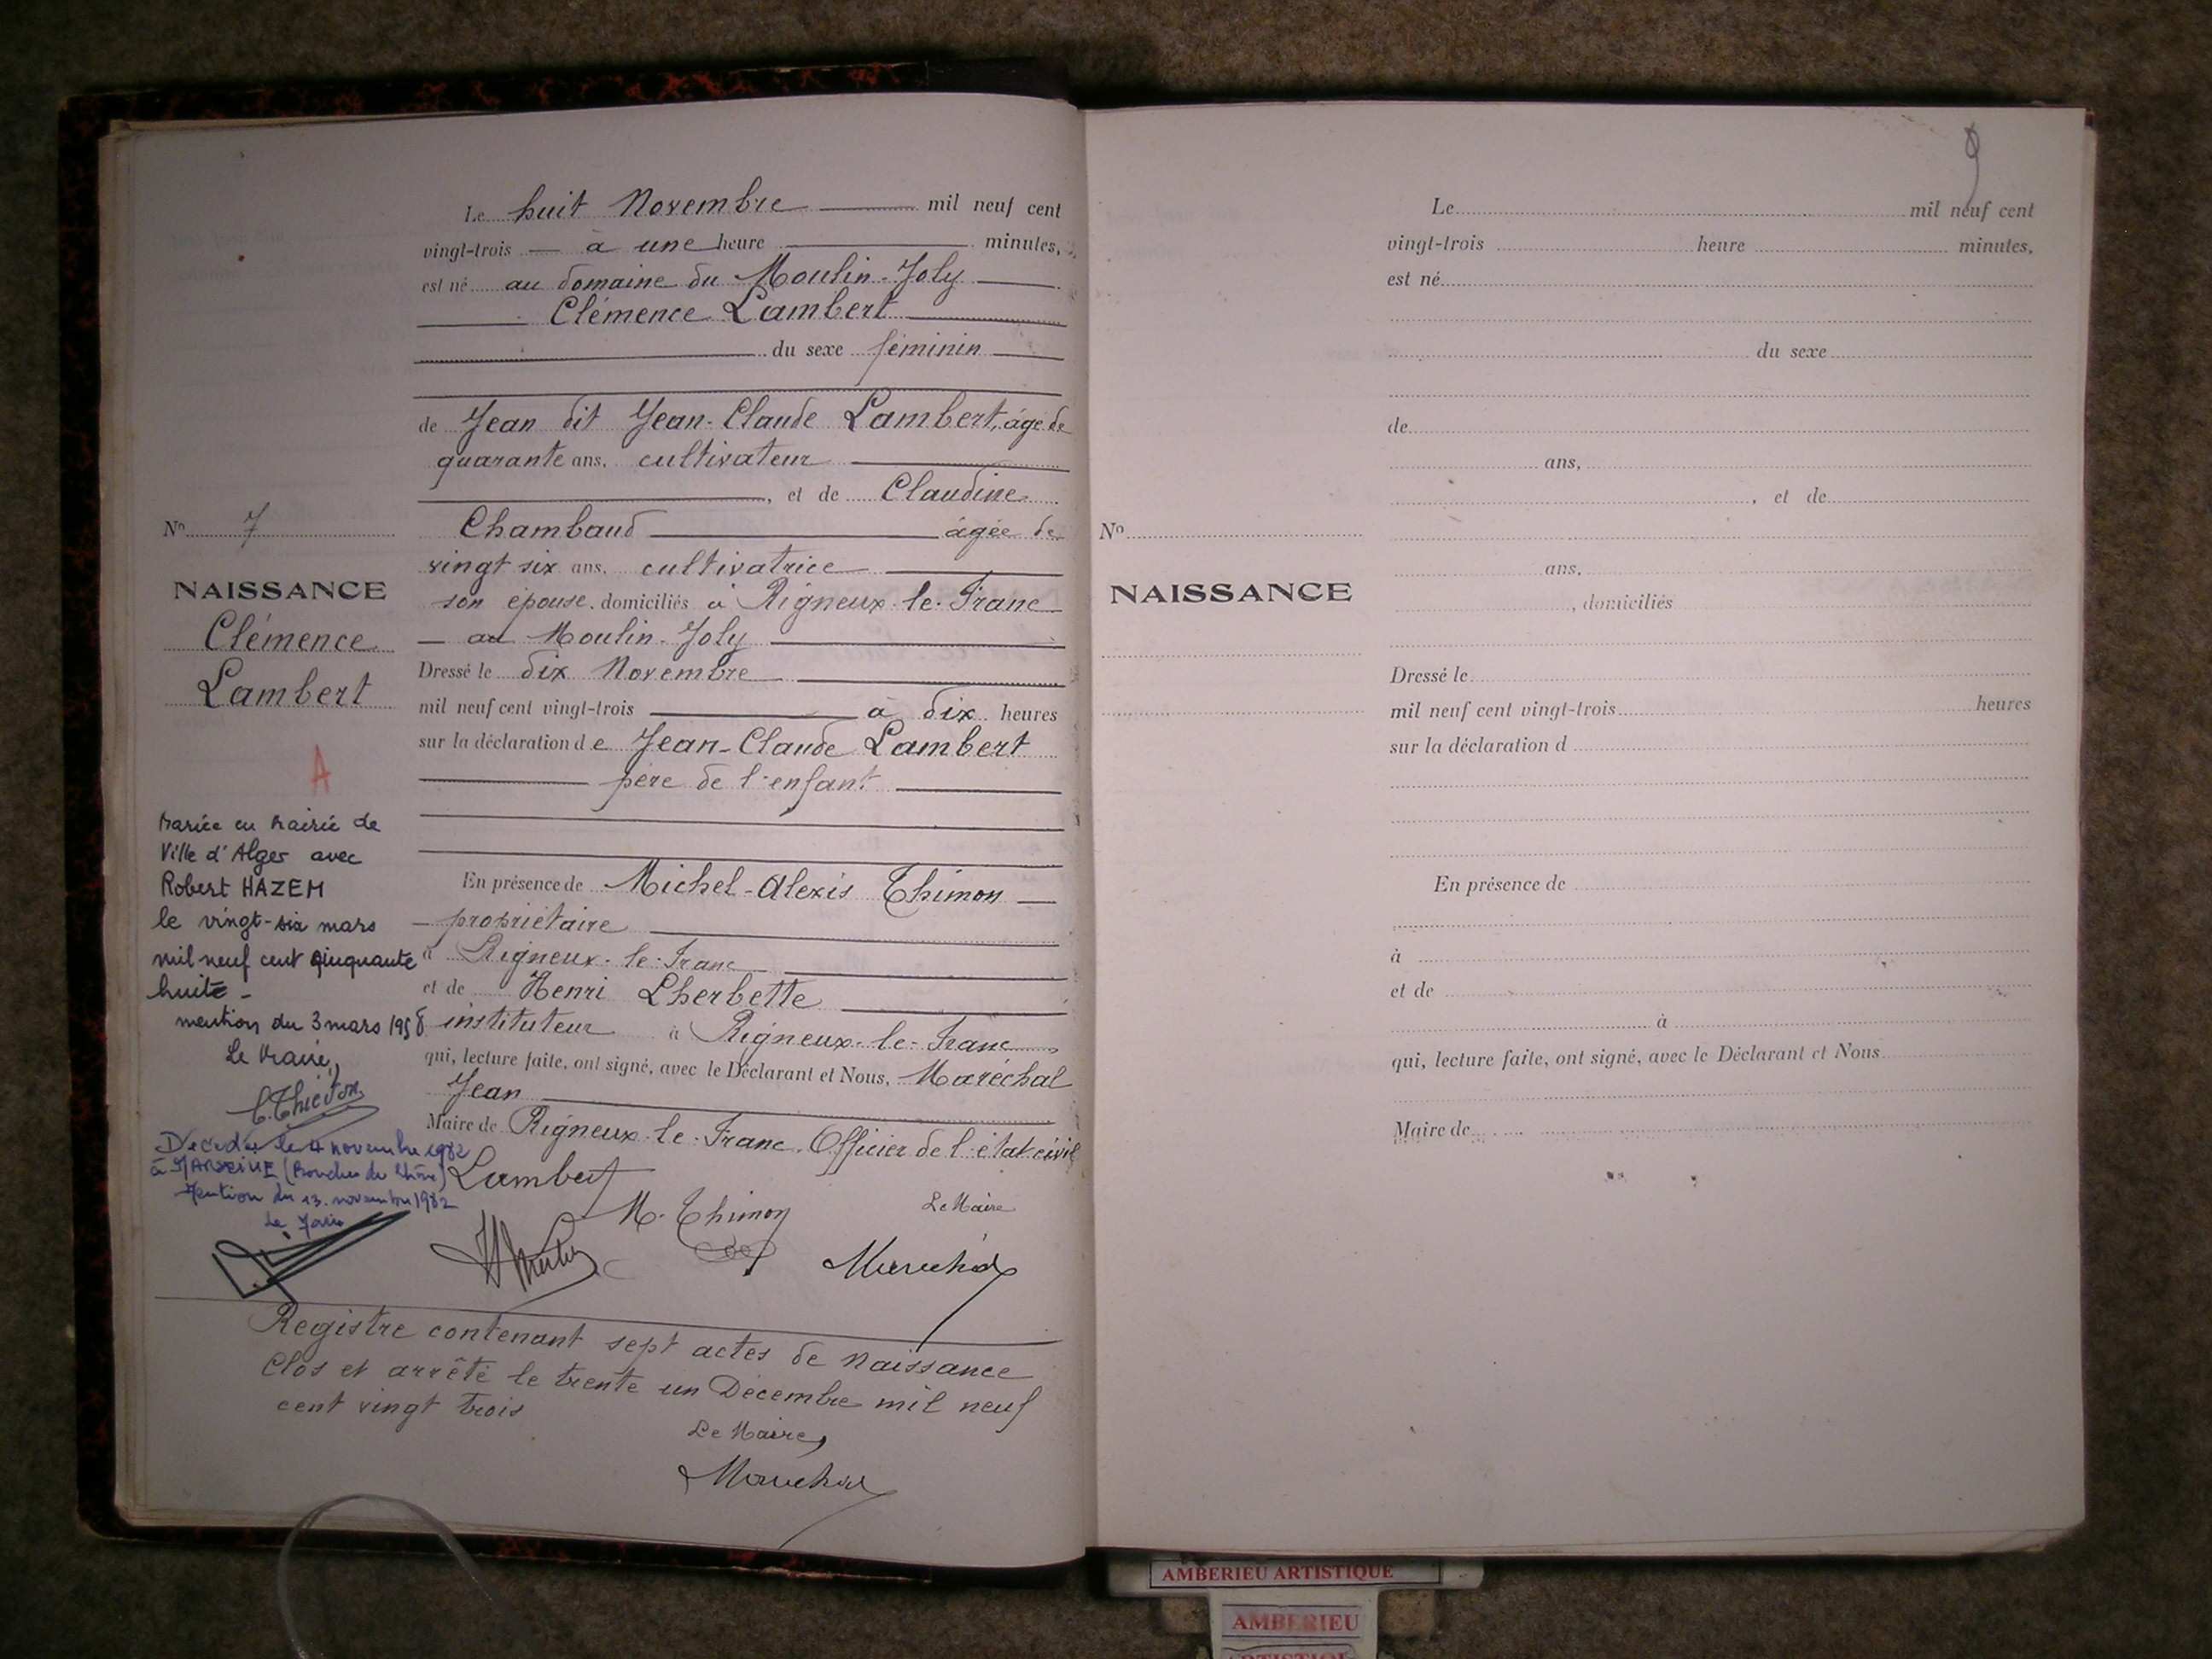 Le huit Novembre mil neuf cent
vingt-trois à une heure minutes,
est né au domaine du Moulin-Joly
Clémence Lambert
du sexe féminin
de Jean dit Jean-Claude Lambert, âgé de
quarante ans, cultivateur
, et de Claudine
Chambaud âgée de
vingt six ans, cultivatrice
son épouse, domiciliés à Rigneux-le-Franc
au Moulin-Joly
Dressé le dix Novembre
mil neuf cent vingt-trois à dix heures
sur la déclaration de Jean-Claude Lambert
père de l'enfant
En présence de Michel-Alexis Thimon
propriétaire
à Rigneux-le-Franc
et de Henri Lherbette
instituteur à Rigneux-le-Franc
qui, lecture faite, ont signé, avec le Déclarant et Nous, Maréchal
Jean
Maire de Rigneux-le-Franc, Officier de l'état civil
Lambert
M. Thimon
Le Maire
Maréchal
N° 7
NAISSANCE
Clémence
Lambert
A
Mariée en Mairie de
Ville d'Alger avec
Robert HAZEM
le vingt-six mars
mil neuf cent cinquante
huit
mention du 3 mars 1958
Le Maire,
Décédée le 4 novembre 1982
à MARSEILLE (Bouches du Rhône)
Mention du 13 novembre 1982
Le Maire
Registre contenant sept actes de naissance
Clos et arrêté le trente un Décembre mil neuf
cent vingt trois
Le Maire,
Maréchal
9
Le mil neuf cent
vingt-trois heure minutes,
est né
du sexe
de
ans,
, et de
N°
ans,
NAISSANCE
, domiciliés
Dressé le
mil neuf cent vingt-trois heures
sur la déclaration d
En présence de
à
et de
à
qui, lecture faite, ont signé, avec le Déclarant et Nous
Maire de
AMBERIEU ARTISTIQUE
AMBERIEU
ARTISTIQUE